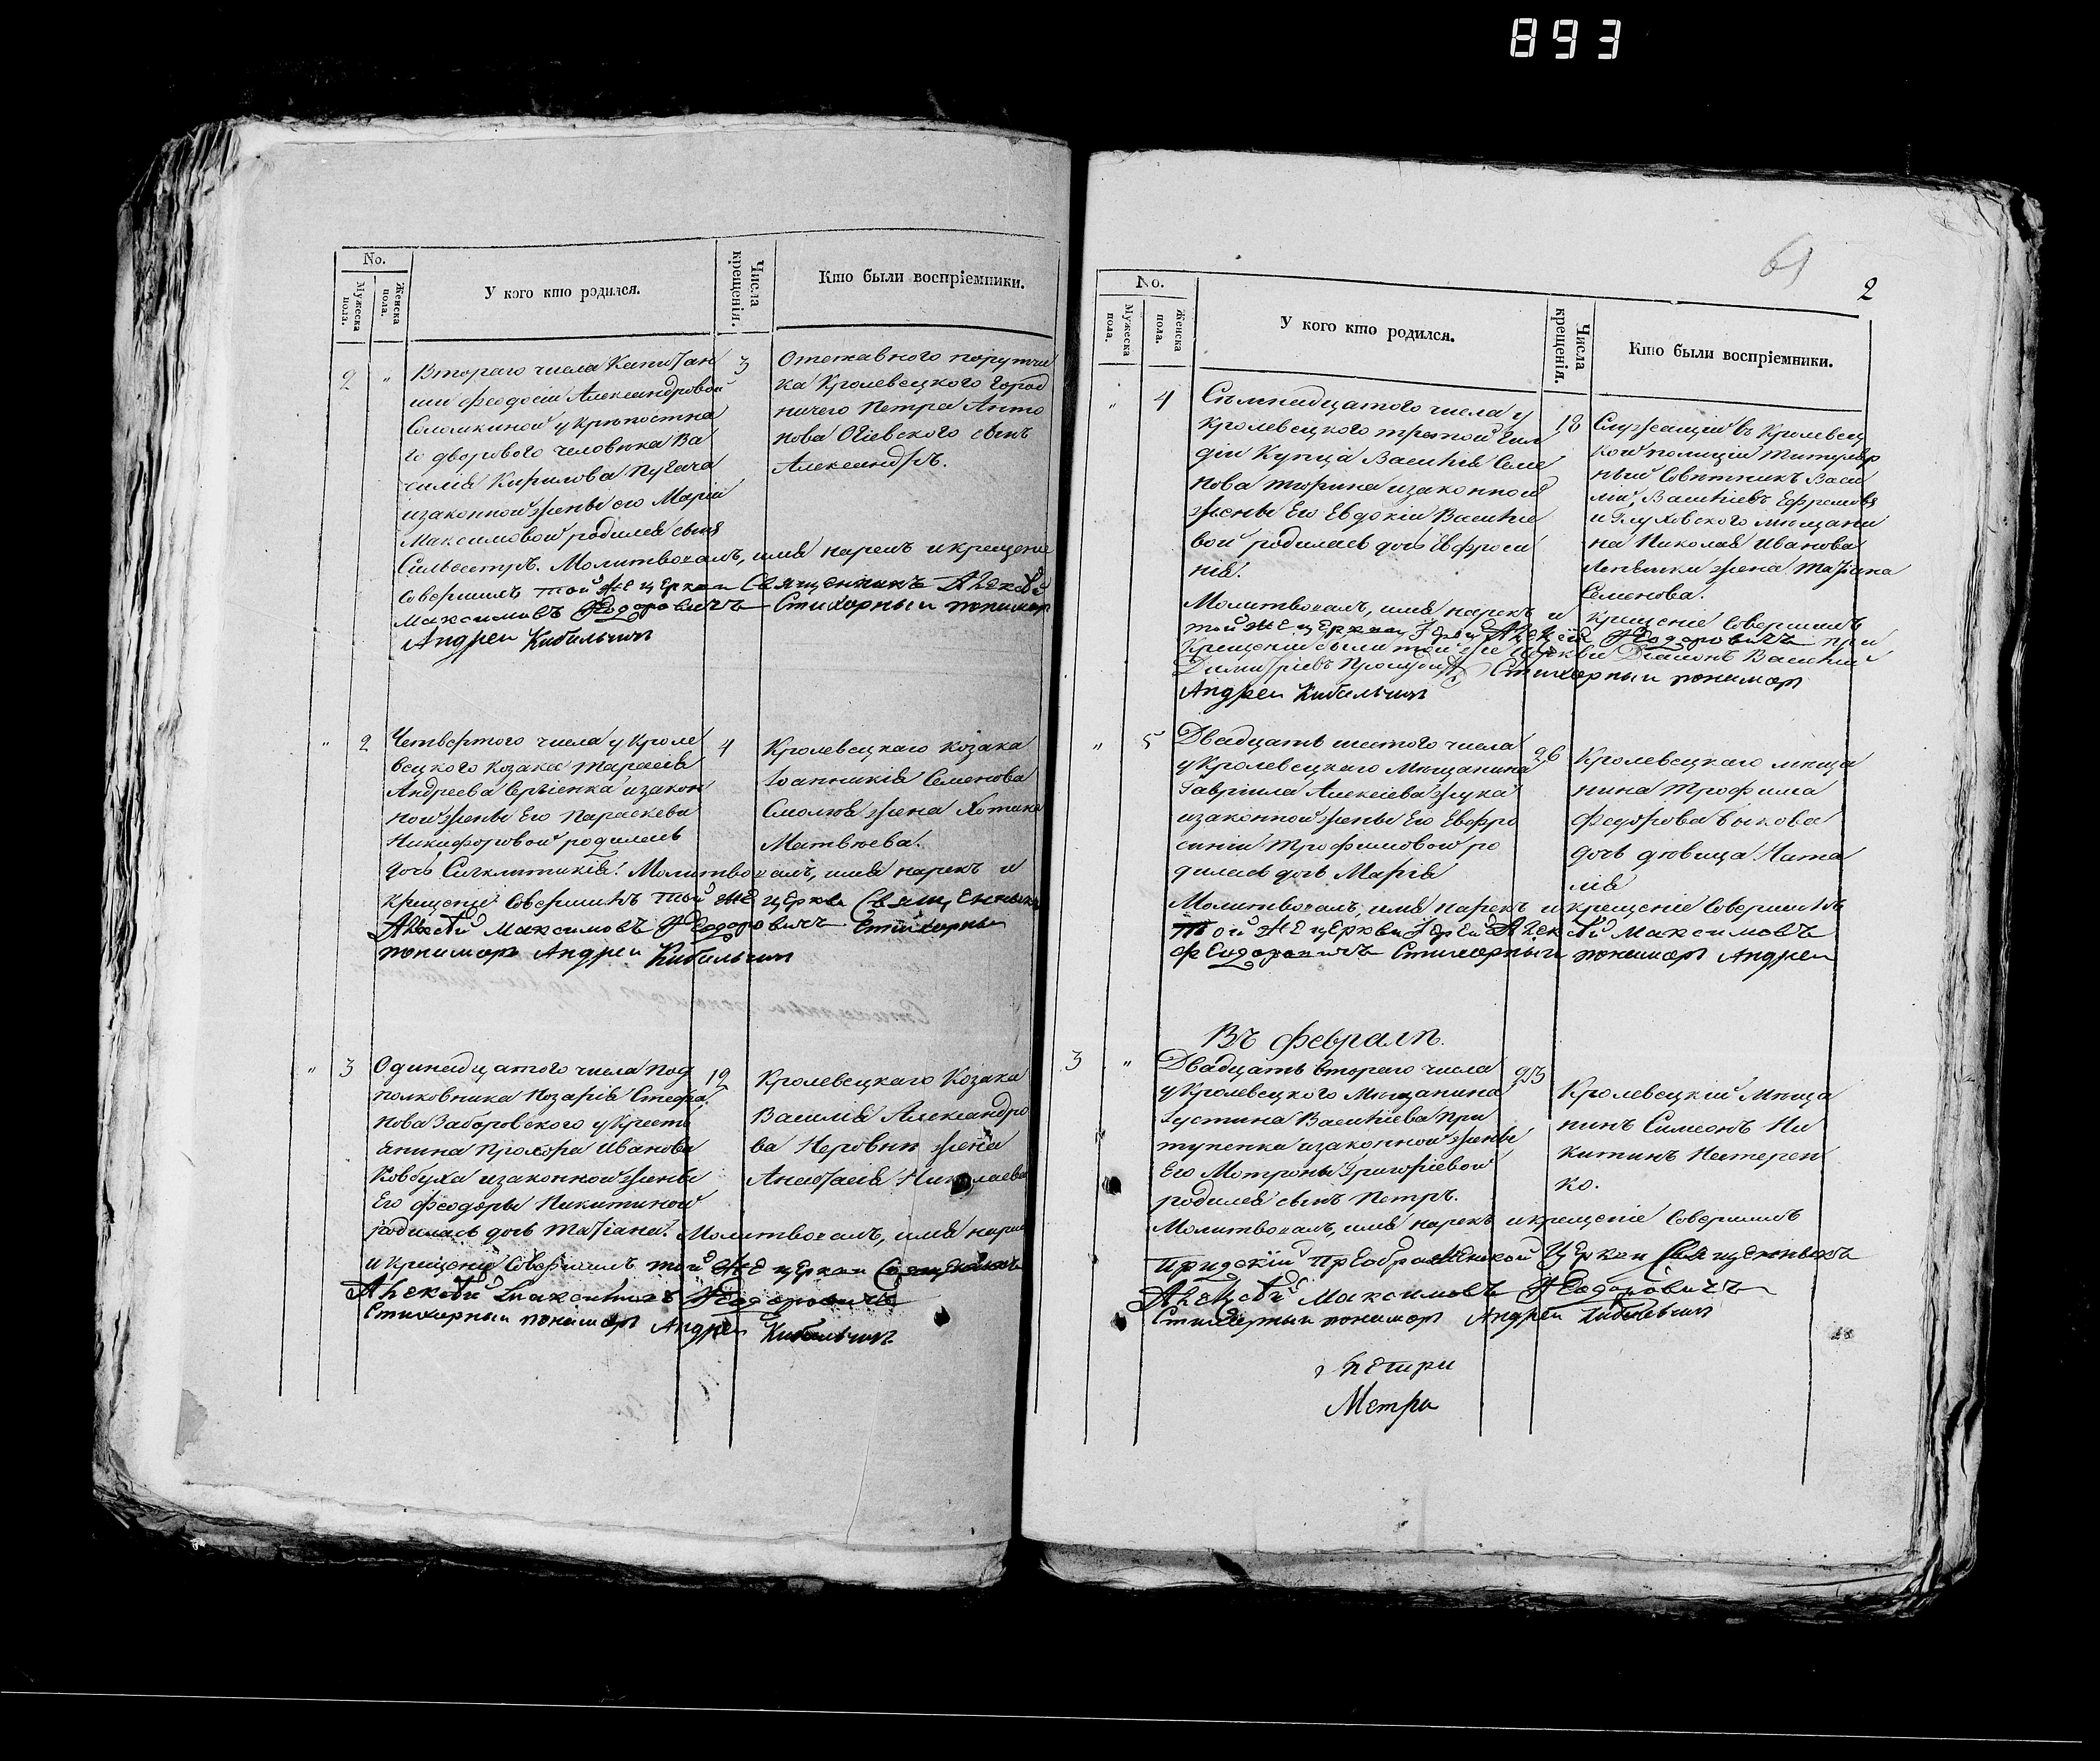 893
No.
Мужеска пола.
Женска пола.
У кого кто родился.
Числа крещенія.
Кто были воспріемники.
2 " Втораго числа Капитан
ши Феодосіи Александровой
Соломкиной у крѣпостна
го двороваго человѣка Ва
силія Кирилова Пугача
изаконной жены его Маріи
Максимовой родился сынъ
Сильвестръ. Молитвовалъ, имя нарекъ икрещеніе
совершилъ той же церкви Священникъ Алексѣй
Максимовъ Федоровичъ Стихарный пономарь
Андрей Кибальчич
3
Отставного поручи
ка Кролевецкого город
ничего Петра Анто
нова Огіевского сынъ
Александръ.
" 2 Четвертого числа у Кроле
вецкого Козака Тарасія
Андреева изакон
ной жены Его Параскевы
Никифоровой родилась
дочь Сигклитикія. Молитвовалъ, имя нарекъ и
крещеніе Совершилъ той же церкви Священникъ
Алексѣй Максимовъ Федоровичъ Стихарный
пономарь Андрей Кибальчич
4
Кролевецкаго козака
Іоанникія Семенова
жена
Матвѣева.
" 3 Одинадцатого числа под
полковника Назарія Стефа
нова Заборовского у Кресть
янина Прохора Иванова
Ковбуха изаконной жены
Его Феодоры Никитиной
родилась дочь Татіана. Молитвовалъ, имя нарекъ
и Крещеніе Совершилъ той же церкви Священникъ
Алексѣй Максимовъ Федоровичъ
Стихарный пономарь Андрей Кибальчич
12
Кролевецкаго Козака
Василія Александро
ва жена
Анастасія Николаева
2
No.
Мужеска пола.
Женска пола.
У кого кто родился.
Числа крещенія.
Кто были воспріемники.
" 4 Сѣмнадцатого числа у
Кролевецкого третой Гил
діи Купца Василія Семе
нова Тюрина изаконной
жены Его Евдокіи Василіе
вой родилась дочь Евфроси
нія.
Молитвовалъ, имя нарекъ и крещеніе Совершилъ
той же церкви Іерей Алексѣй Федоровичъ при
Крещеніи былъ той же церкви Діаконъ Василій
Димитріевъ Стихарный пономарь
Андрей Кибальчич
18
Служащій въ Кролевец
кой полиціи Титуляр
ный Совѣтникъ Васи
лій Василіевъ Ефремовъ
и Глуховского мѣщани
на Николая Иванова
жена Татіана
Семенова.
" 5 Двадцать шестого числа
у Кролевецкаго Мѣщанина
Гавріила Алексіева Жука
изаконной жены Его Евфро
синіи Трофимовой ро
дилась дочь Марія
Молитвовалъ, имя нарекъ икрещеніе Совершилъ
той же церкви Іерей Алексѣй Максимовъ
Федоровичъ Стихарный пономарь Андрей
26
Кролевецкаго мѣща
нина Трофима
Федорова Быкова
дочь дѣвица Ната
лія
Въ Февралѣ.
3 " Двадцать втораго числа
у Кролевецкого Мѣщанина
Іустина Василіева При
тупенка изаконной жены
Его Мотроны Григоріевой
родился сынъ Петръ.
Молитвовалъ, имя нарекъ икрещеніе Совершилъ
Преображенской Церкви Священникъ
Алексѣй Максимовъ Федоровичъ
Стихарный пономарь Андрей Кибальчич
23
Кролевецкій Мѣща
нинъ Симеонъ Ни
китинъ Нестерен
ко.
Метри